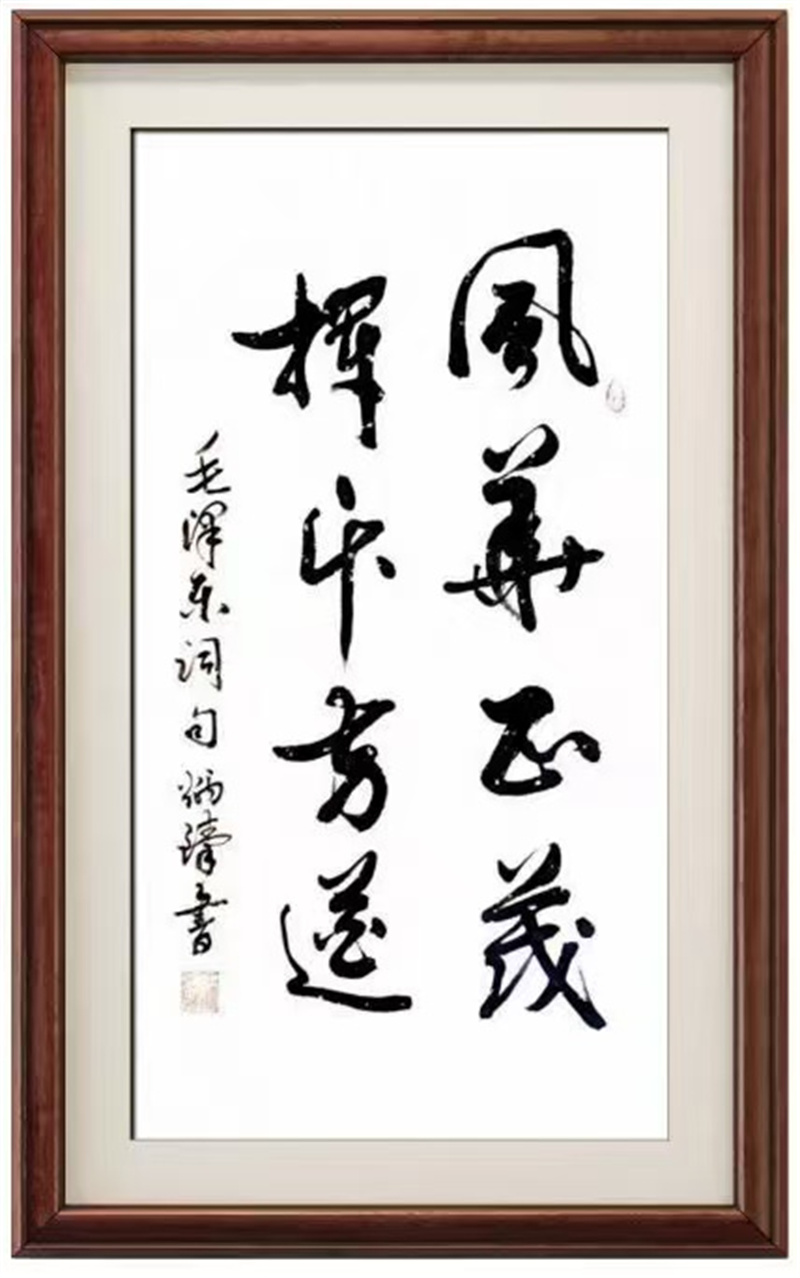 風華正茂
揮斥方遒
毛澤東詞句 書